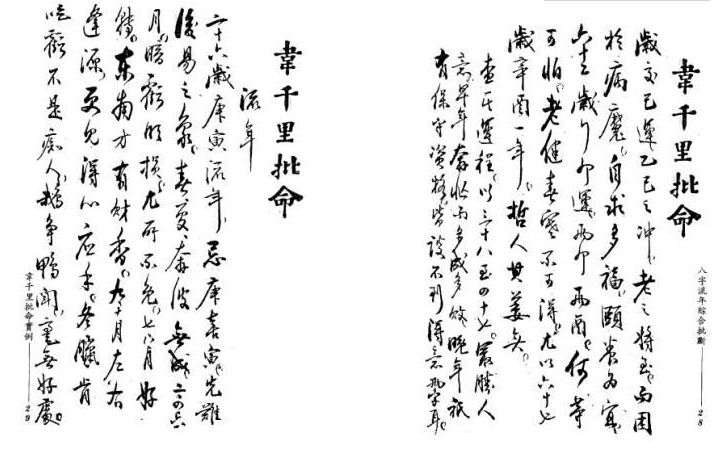 八字流年綜合批斷——28
韋千里批命
歲交己運乙己之冲。老之將至。而困
於病魔。自求多福。頤養為宜。
六十三歲行卯運。兩卯兩酉。何等
可怕。老健春寒不可得。尤以六十七
歲辛酉一年。哲人其萎矣。
查其運程。以三十八至四十七。最勝人
意。早年奔忙而多成多敗。晚年祇
有保守資格。皆談不到得意兩字耳。
韋千里批命
流年
二十六歲庚寅流年。忌庚喜寅。先難
後易之象。春夏奔波無成。二四六
月。暗虧明損。尤所不免。七八月好
轉。東南方有財香。九十月左右
逢源。更見得心應手。冬臘肯
吃虧不是痴人。鵝爭鴨鬧。毫無好處。
韋千里批命實例——29